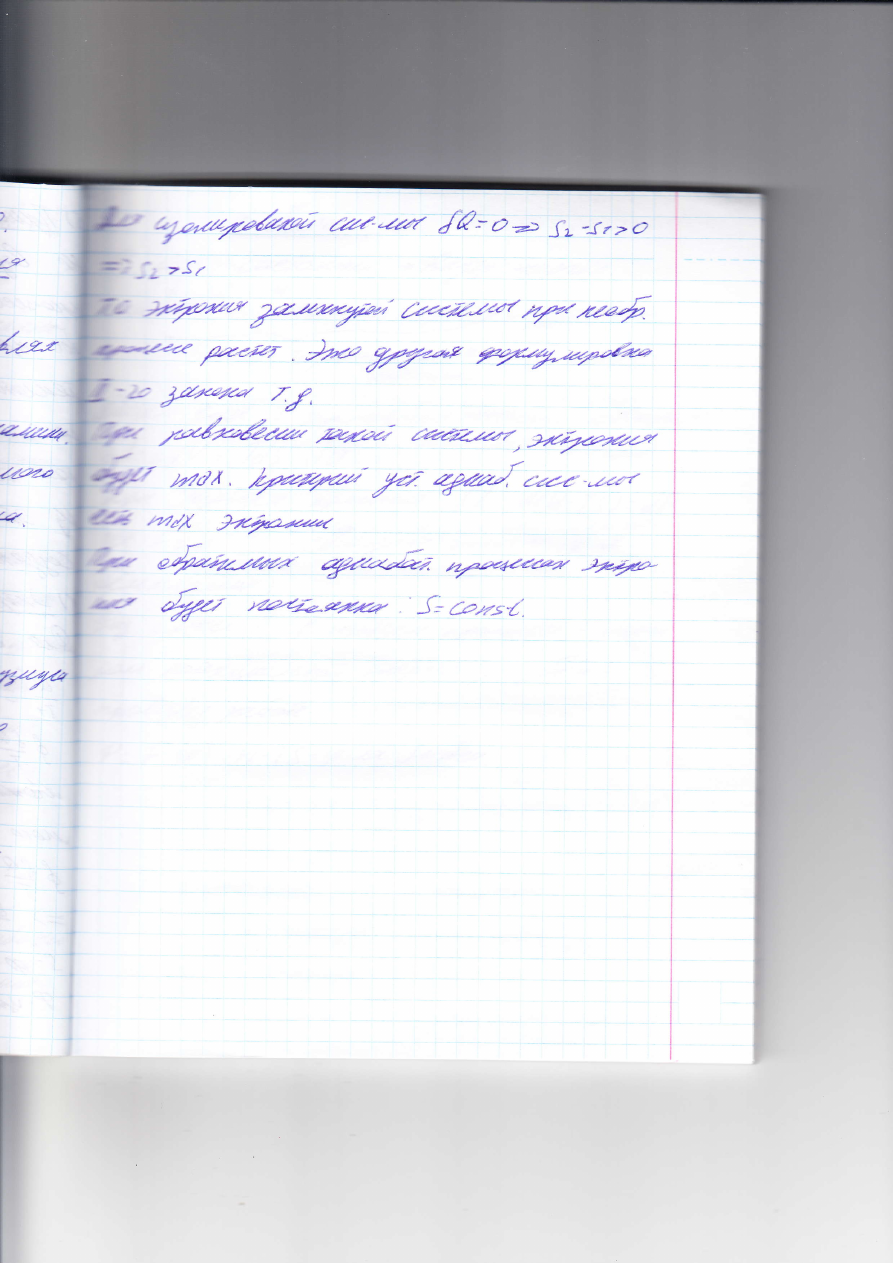 Для изолировакой сис-мы δQ=0 => S₂-S₁>0
=> S₂>S₁
То энтропия замкнутой системы при необр.
процессе растет. Это другая формулировка
II-го закона т.д.
При равновесии такой системы, энтропия
будет max. Критерий уст. адиаб. сис-мы
есть max энтропии
При обратимых адиабат. процессах энтро-
пия будет постоянна: S=const.
влях
ного